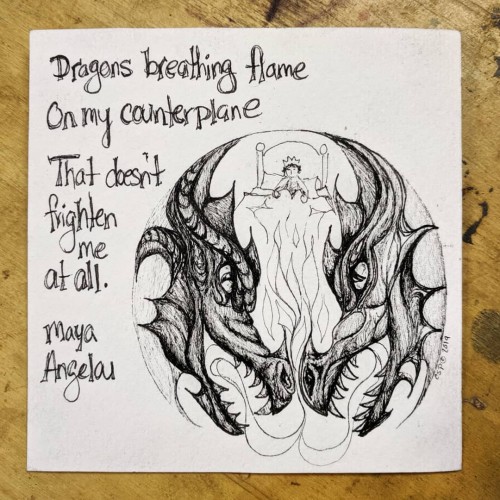 Dragons breathing flame
On my counterplane
That doesn't
frighten
me
at all.
Maya
Angelou